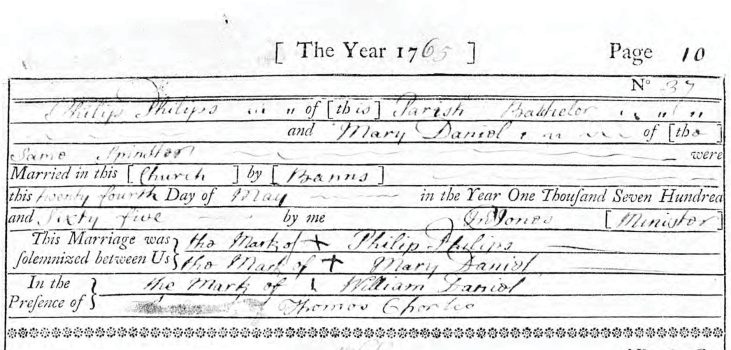 [ The Year 1765 ] Page 10
No 37
Philip Philips of [this] Parish Batchelor
and Mary Daniel of [the]
Same Spinster were
Married in this [Church] by [Banns]
this twenty fourth Day of May in the Year One Thousand Seven Hundred
and Sixty five by me Jno Jones [Minister]
This Marriage was the Mark of + Philip Philips
solemnized between Us the Mark of + Mary Daniel
In the the Mark of William Daniel
Presence of Thomas Charles